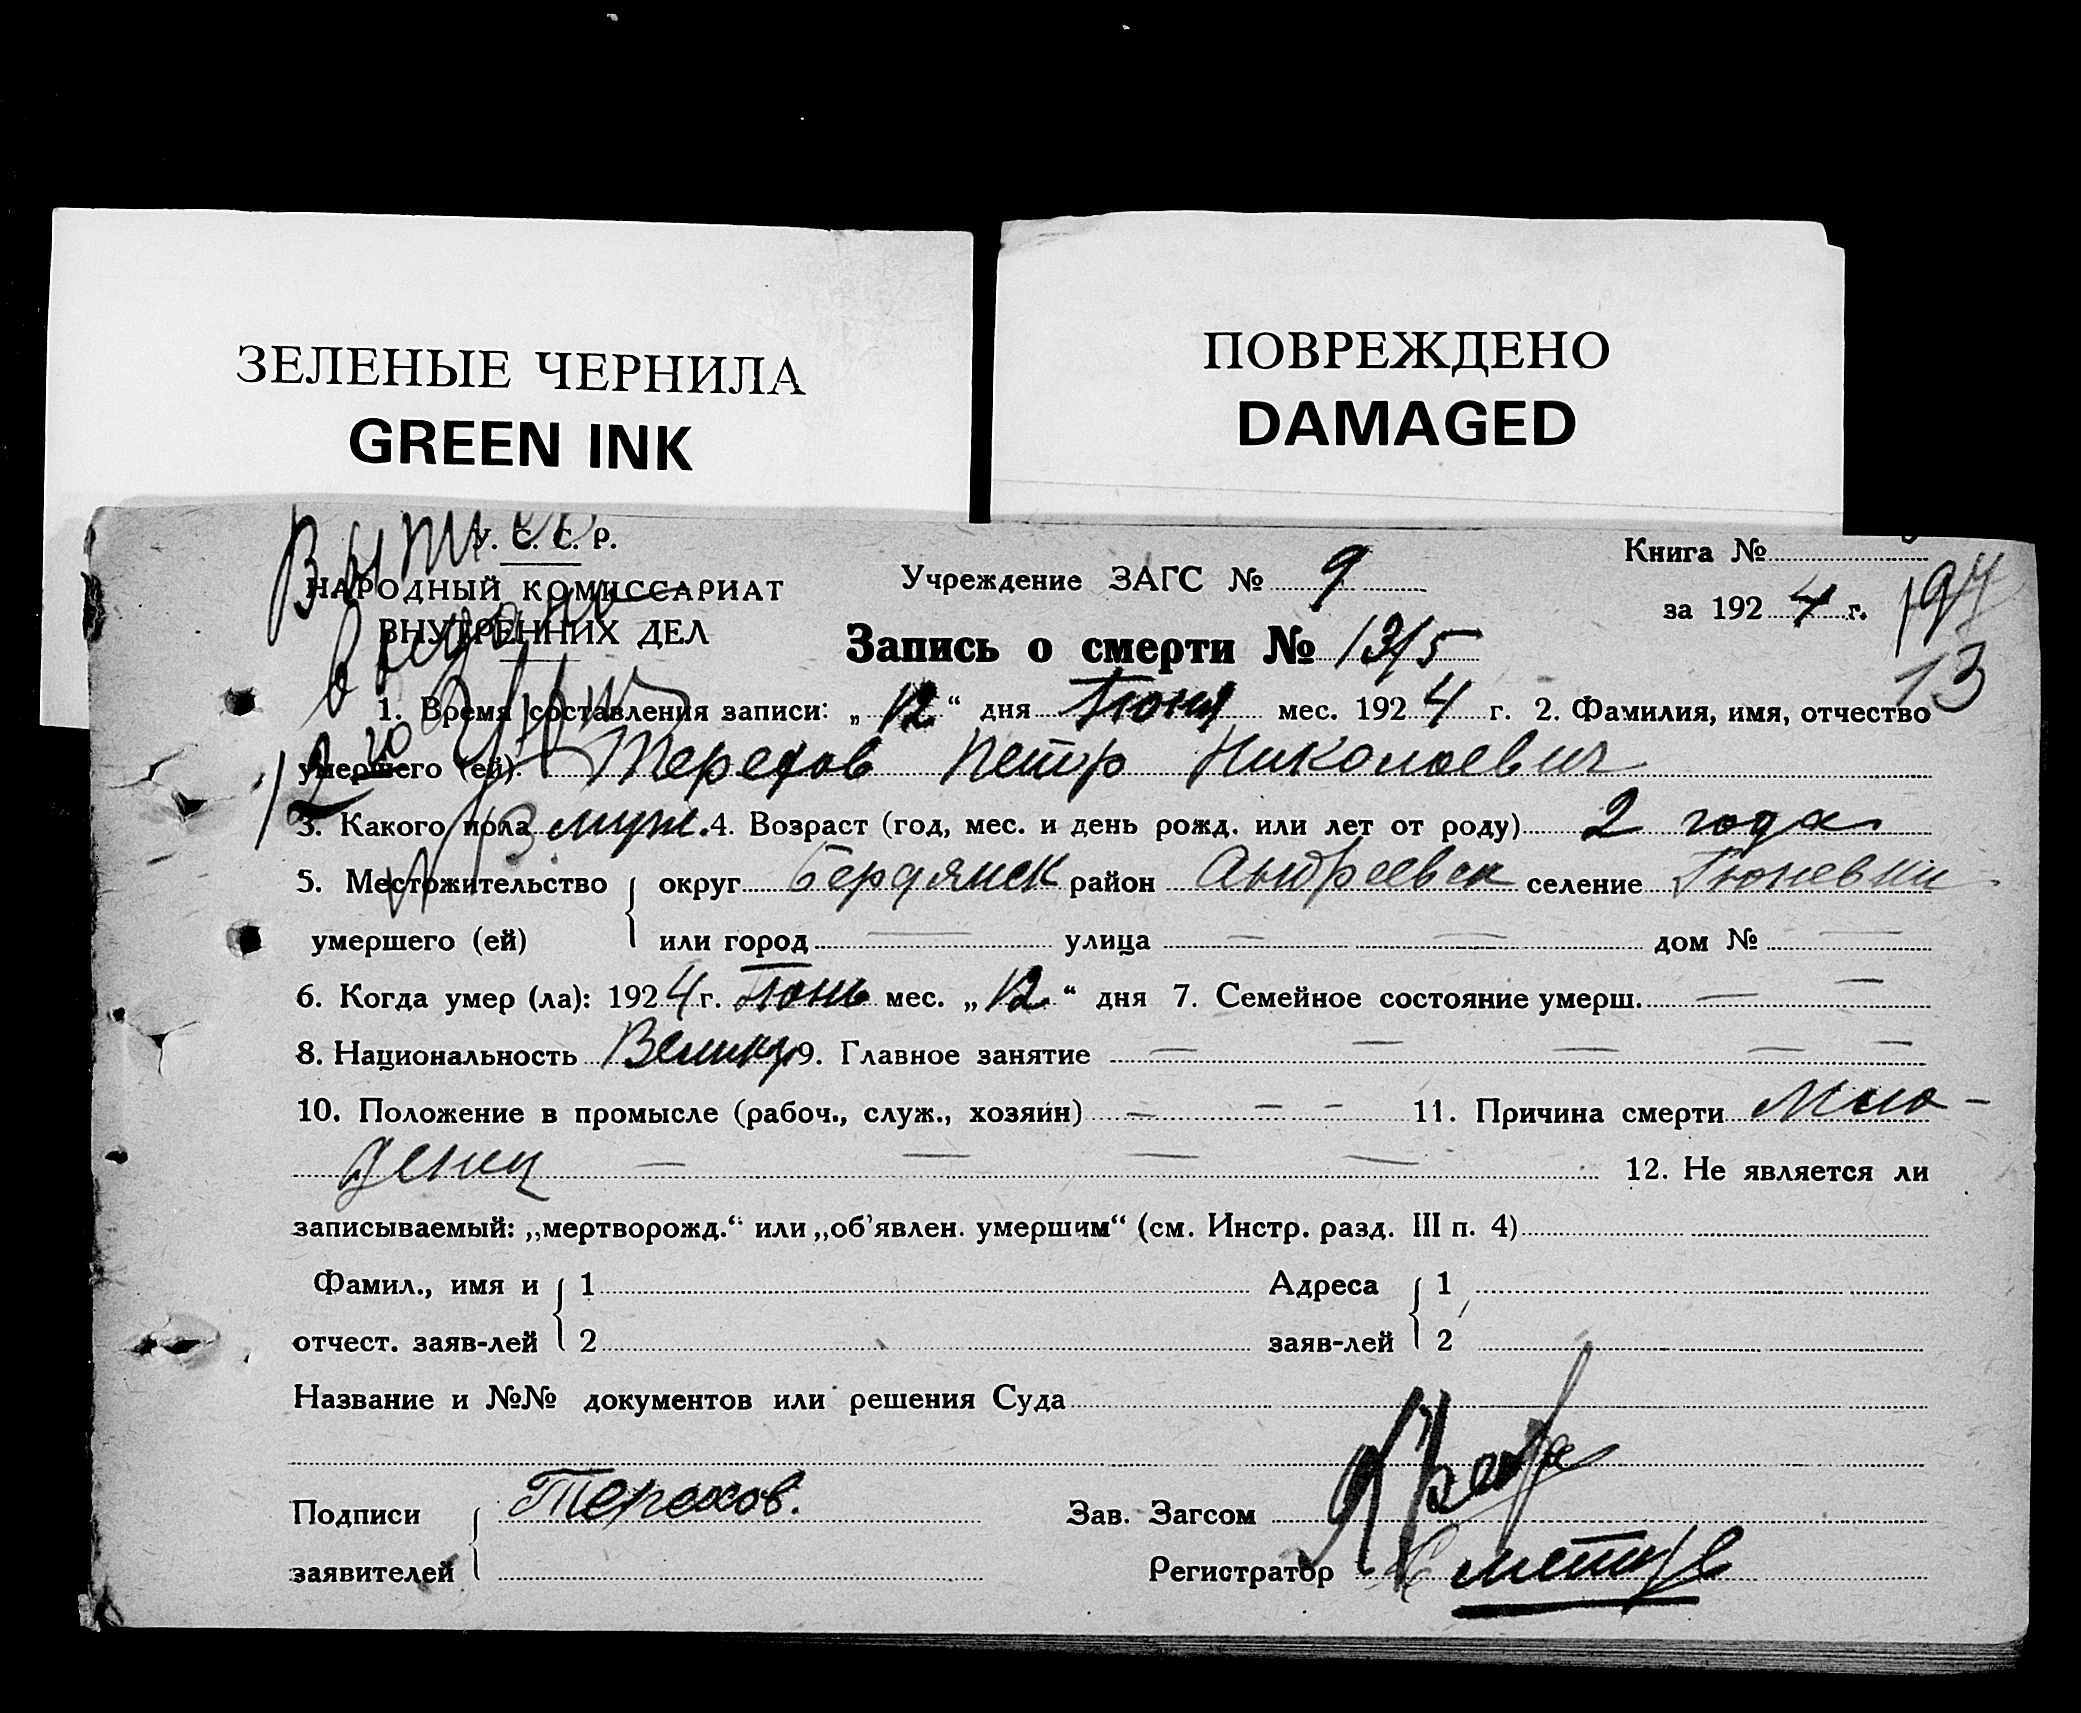 ЗЕЛЕНЫЕ ЧЕРНИЛА
GREEN INK
ПОВРЕЖДЕНО
DAMAGED
У. С. С. Р.
НАРОДНЫЙ КОМИССАРИАТ
ВНУТРЕННИХ ДЕЛ
Учреждение ЗАГС № 9
Книга №
за 1924 г.
13
Запись о смерти № 13/5
1. Время составления записи: „12“ дня Июня мес. 1924 г. 2. Фамилия, имя, отчество
умершего (ей). Терехов Петр Николаевич
3. Какого пола муж. 4. Возраст (год, мес. и день рожд. или лет от роду) 2 года
5. Местожительство округ Бердянск район Андреевск селение
умершего (ей) или город — улица — — дом № —
6. Когда умер (ла): 1924 г. Июнь мес. „12“ дня 7. Семейное состояние умерш. — —
8. Национальность 9. Главное занятие — — — — —
10. Положение в промысле (рабоч., служ., хозяин) — — — 11. Причина смерти Мла-
денец — — — — 12. Не является ли
записываемый: „мертворожд.“ или „об'явлен. умершим“ (см. Инстр. разд. III п. 4)
Фамил., имя и 1 Адреса 1
отчест. заяв-лей 2 заяв-лей 2
Название и №№ документов или решения Суда
Подписи Терехов. Зав. Загсом
заявителей Регистратор